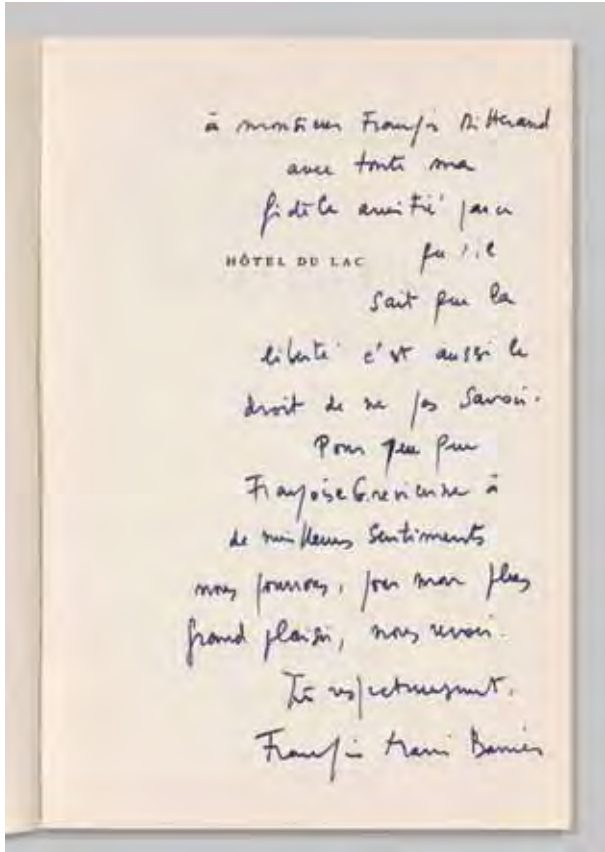 à monsieur François Mitterand
avec toute ma
fidèle amitié parce
HÔTEL DU LAC qu'il
sait que la
liberté c'est aussi le
droit de ne pas savoir.
Pour peu que
Françoise G. revienne à
de meilleurs sentiments
nous pourrons, pour mon plus
grand plaisir, nous revoir.
Très respectueusement.
François Marie Banier